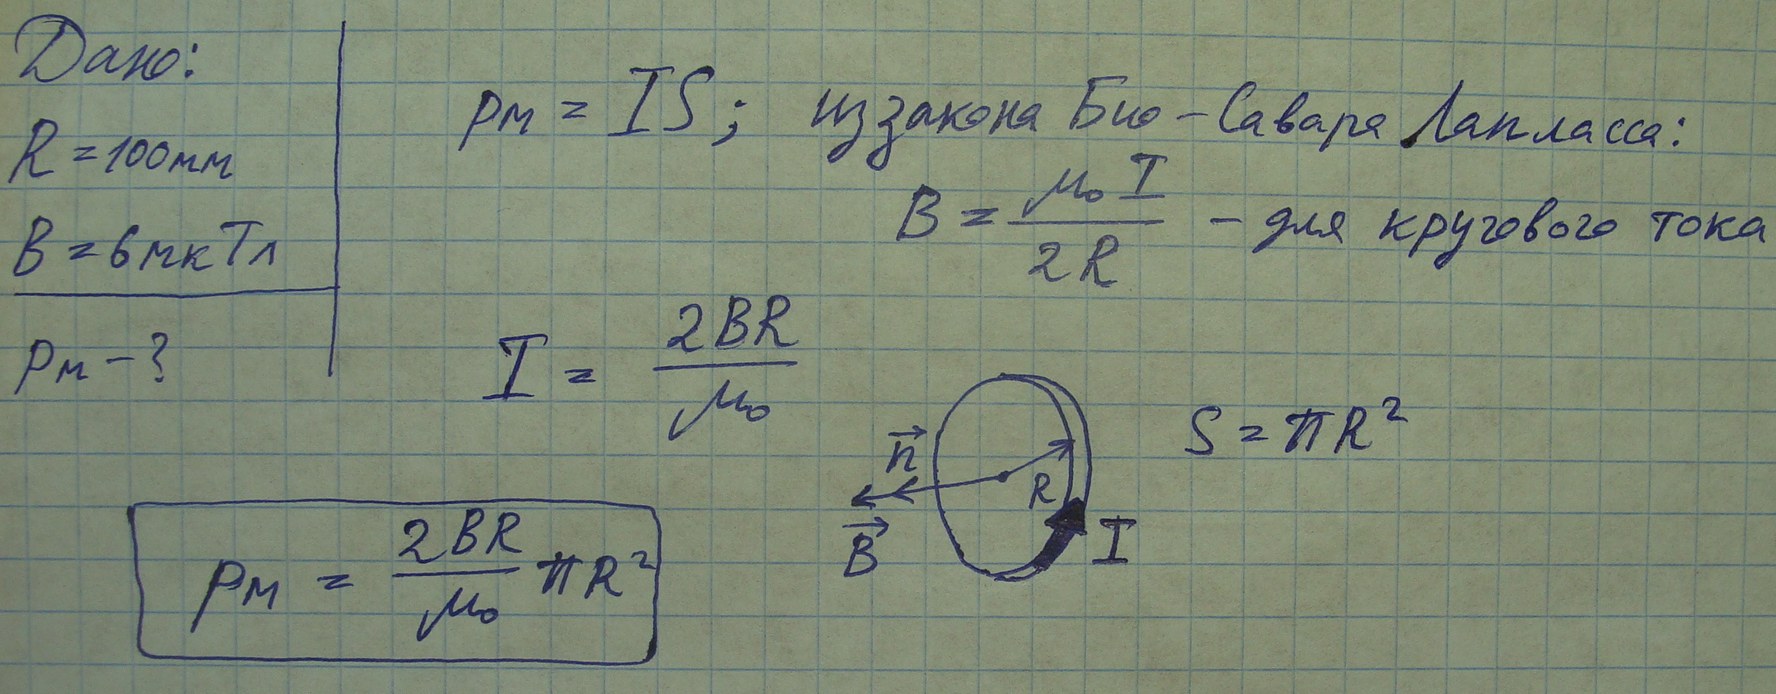 Дано:
R = 100мм
B = 6мкТл
pм - ?
pм = IS; из закона Био - Савара Лапласса:
B = μ₀I / 2R - для кругового тока
I = 2BR / μ₀
S = πR²
n⃗
R
B⃗
I
pм = 2BR / μ₀ πR²